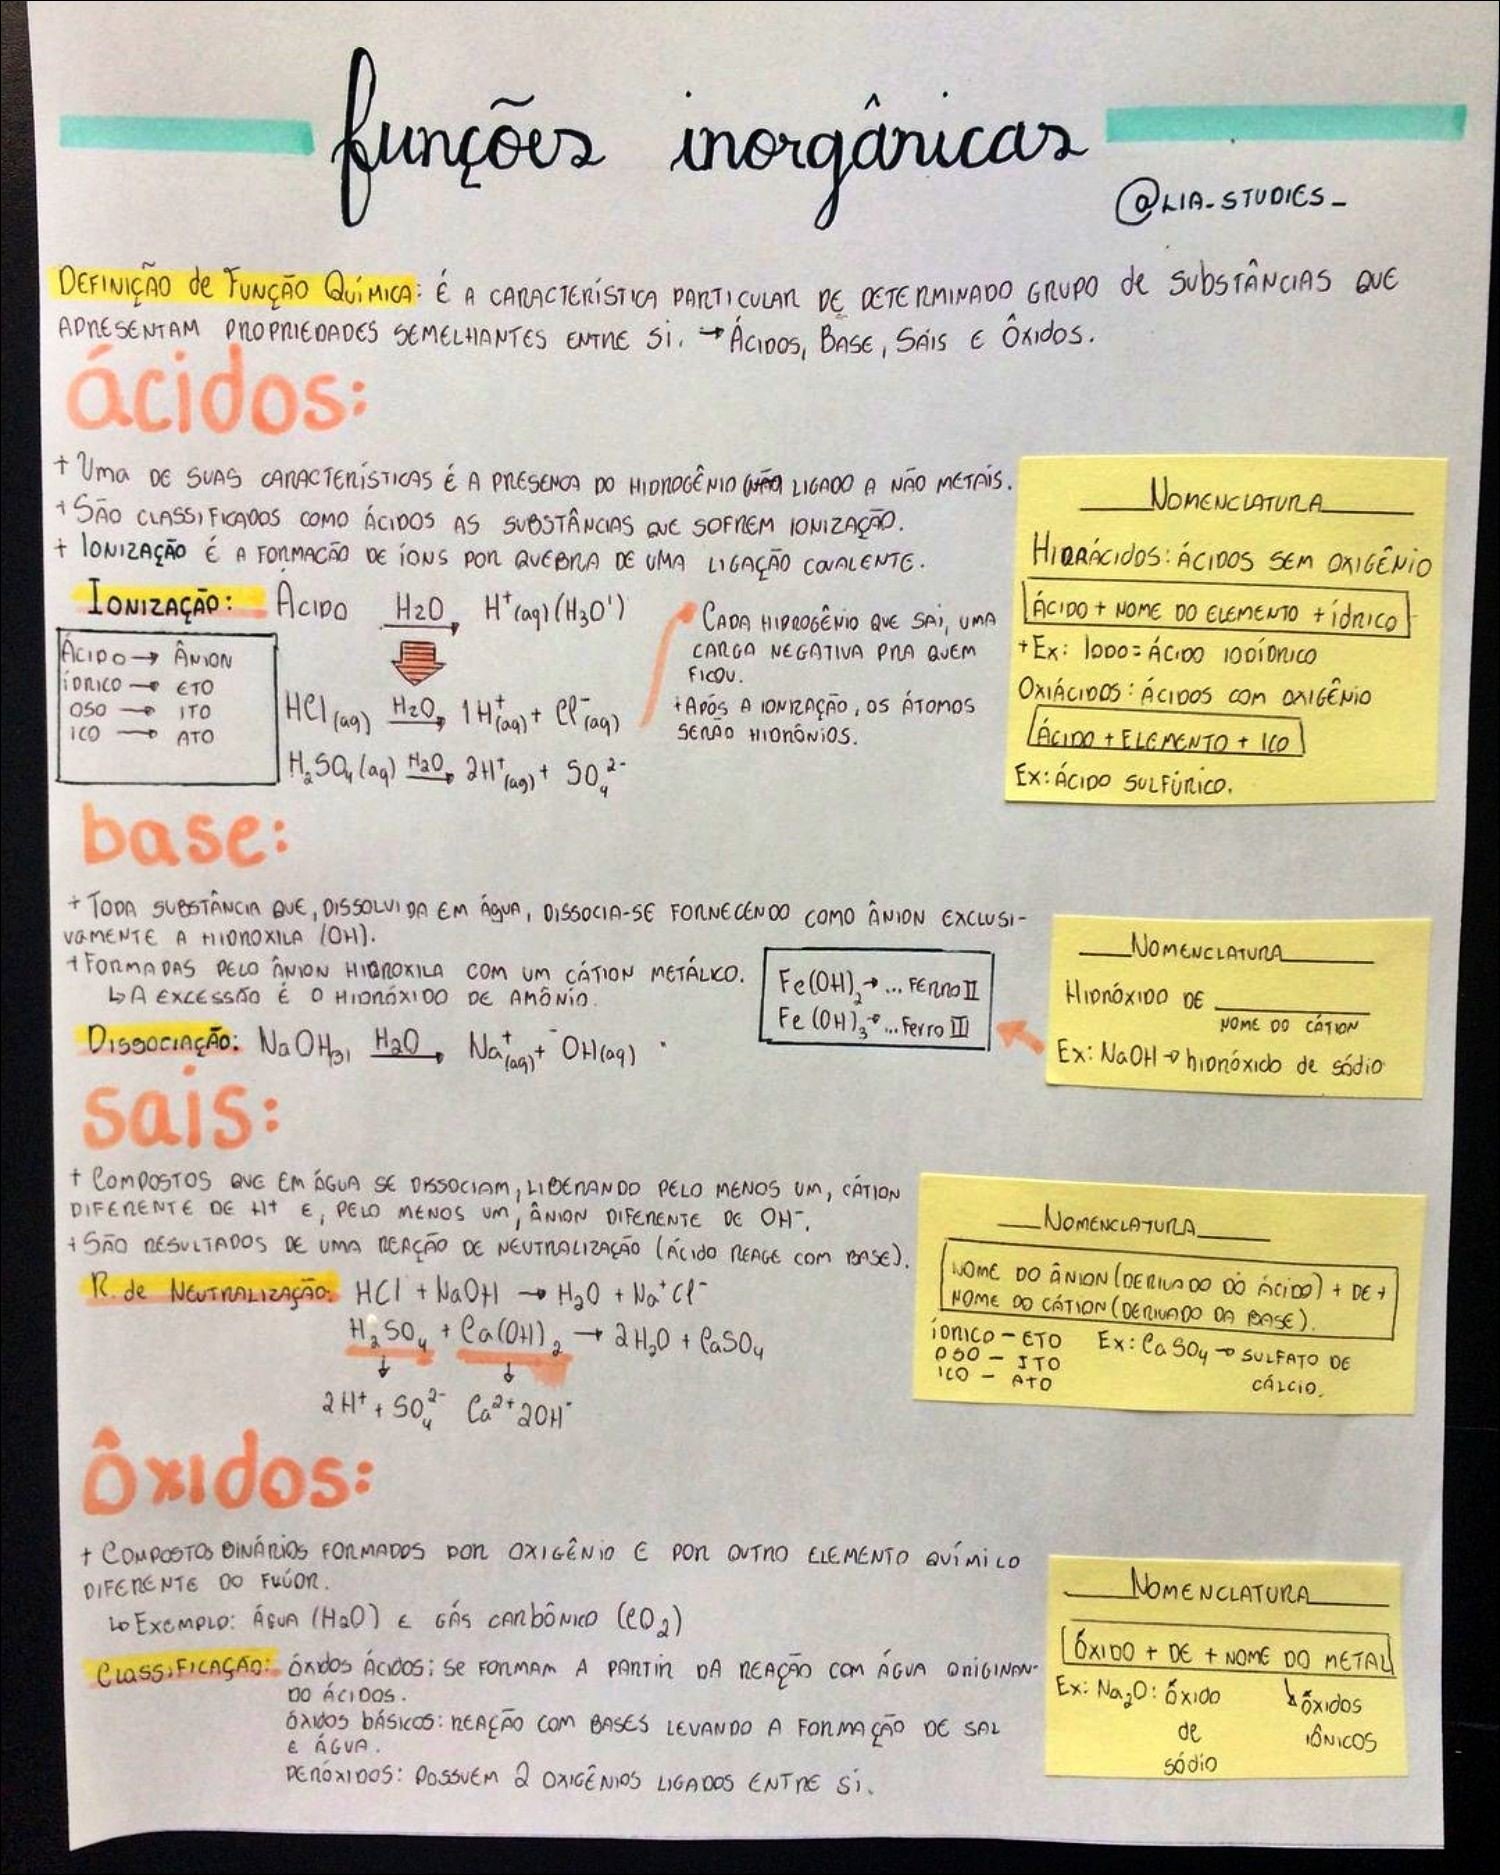 funções inorgânicas
@LIA_STUDIES_
DEFINIÇÃO de FUNÇÃO QUÍMICA: É A CARACTERÍSTICA PARTICULAR DE DETERMINADO GRUPO de SUBSTÂNCIAS QUE
APRESENTAM PROPRIEDADES SEMELHANTES ENTRE SI. → ÁCIDOS, BASE, SAIS E ÓXIDOS.
ácidos:
+ Uma DE SUAS CARACTERÍSTICAS É A PRESENÇA DO HIDROGÊNIO LIGADO A NÃO METAIS.
+ SÃO CLASSIFICADOS COMO ÁCIDOS AS SUBSTÂNCIAS QUE SOFREM IONIZAÇÃO.
+ IONIZAÇÃO É A FORMAÇÃO DE ÍONS POR QUEBRA DE UMA LIGAÇÃO COVALENTE.
IONIZAÇÃO: ÁCIDO H2O→ H⁺(aq) (H3O⁺)
ÁCIDO → ÂNION
ÍDRICO → ETO
OSO → ITO
ICO → ATO
HCl (aq) H2O→ 1H⁺(aq) + Cl⁻(aq)
H₂SO₄ (aq) H2O→ 2H⁺(aq) + SO₄²⁻
CADA HIDROGÊNIO QUE SAI, UMA
CARGA NEGATIVA PRA QUEM
FICOU.
+ APÓS A IONIZAÇÃO, OS ÁTOMOS
SERÃO HIDRÔNIOS.
NOMENCLATURA
HIDRÁCIDOS: ÁCIDOS SEM OXIGÊNIO
ÁCIDO + NOME DO ELEMENTO + ÍDRICO
+ Ex: IODO = ÁCIDO IODÍDRICO
OXIÁCIDOS: ÁCIDOS COM OXIGÊNIO
ÁCIDO + ELEMENTO + ICO
Ex: ÁCIDO SULFÚRICO.
base:
+ TODA SUBSTÂNCIA QUE, DISSOLVIDA EM ÁGUA, DISSOCIA-SE FORNECENDO COMO ÂNION EXCLUSI-
VAMENTE A HIDROXILA (OH).
+ FORMADAS PELO ÂNION HIDROXILA COM UM CÁTION METÁLICO.
↳ A EXCESSÃO É O HIDRÓXIDO DE AMÔNIO.
DISSOCIAÇÃO: NaOH(s) H2O→ Na⁺(aq) + ⁻OH(aq)
Fe(OH)₂ → ... FERRO II
Fe(OH)₃ → ... Ferro III
NOMENCLATURA
HIDRÓXIDO DE ______
NOME DO CÁTION
Ex: NaOH → hidróxido de sódio
sais:
+ COMPOSTOS QUE EM ÁGUA SE DISSOCIAM, LIBERANDO PELO MENOS UM, CÁTION
DIFERENTE DE H⁺ E, PELO MENOS UM, ÂNION DIFERENTE DE OH⁻.
+ SÃO RESULTADOS DE UMA REAÇÃO DE NEUTRALIZAÇÃO (ÁCIDO REAGE COM BASE).
R. de NEUTRALIZAÇÃO: HCl + NaOH → H₂O + Na⁺Cl⁻
H₂SO₄ + Ca(OH)₂ → 2H₂O + CaSO₄
↓ ↓
2H⁺ + SO₄²⁻ Ca²⁺ 2OH⁻
NOMENCLATURA
NOME DO ÂNION (DERIVADO DO ÁCIDO) + DE +
NOME DO CÁTION (DERIVADO DA BASE).
ÍDRICO - ETO
OSO - ITO
ICO - ATO
Ex: CaSO₄ → SULFATO DE
CÁLCIO.
óxidos:
+ COMPOSTOS BINÁRIOS FORMADOS POR OXIGÊNIO E POR OUTRO ELEMENTO QUÍMICO
DIFERENTE DO FLÚOR.
↳ EXEMPLO: ÁGUA (H2O) E GÁS CARBÔNICO (CO₂)
CLASSIFICAÇÃO: óxidos ÁCIDOS: SE FORMAM A PARTIR DA REAÇÃO COM ÁGUA ORIGINAN-
DO ÁCIDOS.
óxidos básicos: REAÇÃO COM BASES LEVANDO A FORMAÇÃO DE SAL
E ÁGUA.
PERÓXIDOS: POSSUEM 2 OXIGÊNIOS LIGADOS ENTRE SI.
NOMENCLATURA
ÓXIDO + DE + NOME DO METAL
Ex: Na₂O: óxido
de
sódio
↳ óxidos
IÔNICOS